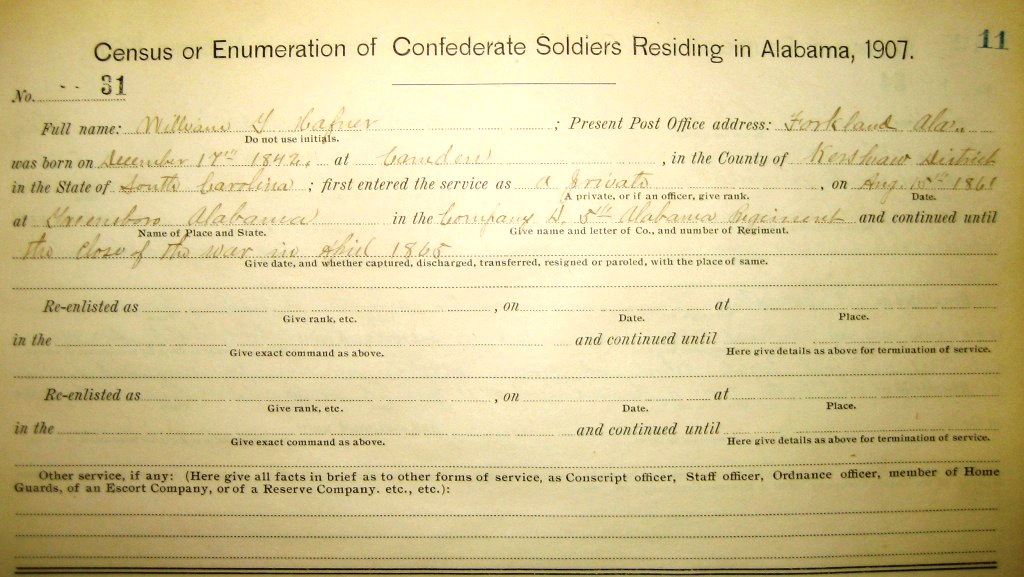 Census or Enumeration of Confederate Soldiers Residing in Alabama, 1907.
11
No. 31
Full name: William Hafner ; Present Post Office address: Forkland Ala.
Do not use initials.
was born on December 17th 1842, at Camden , in the County of Kershaw District
in the State of South Carolina ; first entered the service as a private , on Aug. 15th 1861
A private, or if an officer, give rank. Date.
at Greensboro Alabama in the Company D. 5th Alabama Regiment and continued until
Name of Place and State. Give name and letter of Co., and number of Regiment.
the close of the war in April 1865
Give date, and whether captured, discharged, transferred, resigned or paroled, with the place of same.
Re-enlisted as , on at
Give rank, etc. Date. Place.
in the and continued until
Give exact command as above. Here give details as above for termination of service.
Re-enlisted as , on at
Give rank, etc. Date. Place.
in the and continued until
Give exact command as above. Here give details as above for termination of service.
Other service, if any: (Here give all facts in brief as to other forms of service, as Conscript officer, Staff officer, Ordnance officer, member of Home
Guards, of an Escort Company, or of a Reserve Company. etc., etc.):